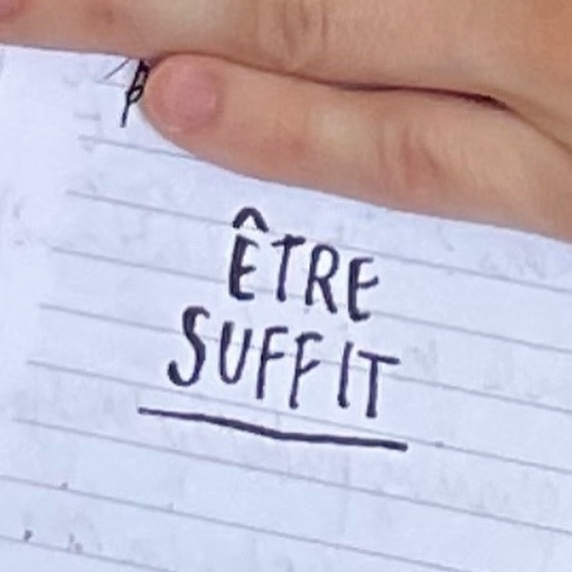 ÊTRE
SUFFIT